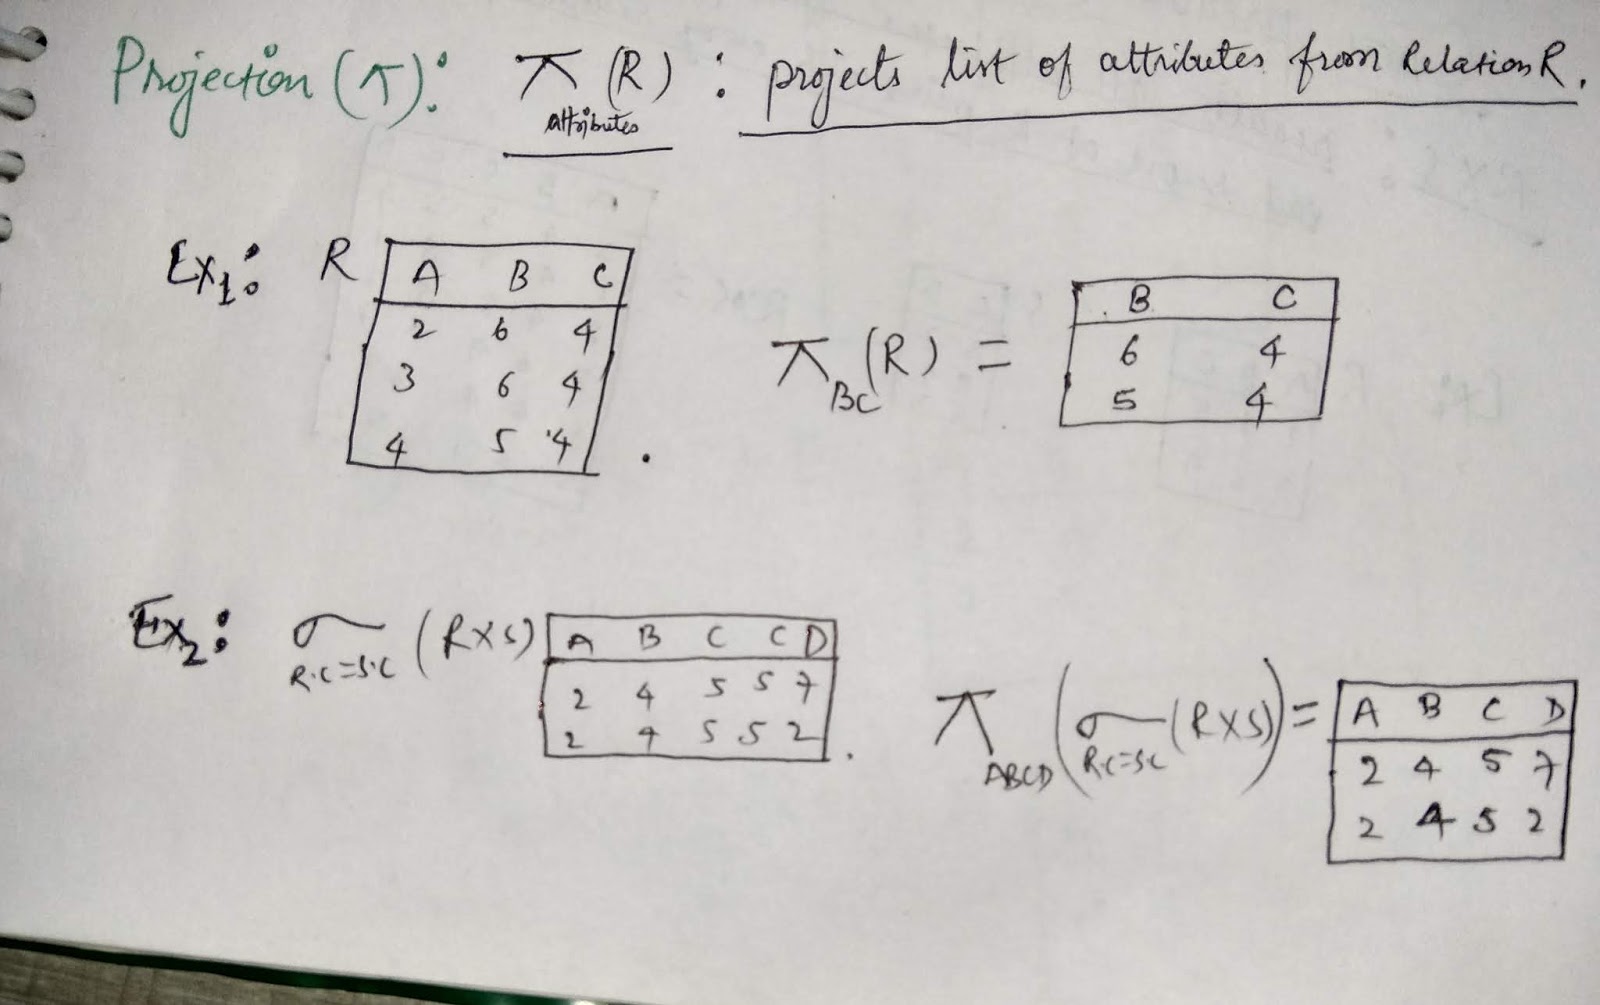 Projection (π): π attributes (R) : projects list of attributes from Relation R.
Ex1: R
A B C
2 6 4
3 6 4
4 5 4
π BC (R) =
B C
6 4
5 4
Ex2: σ R.C=S.C (R×S)
A B C C D
2 4 5 5 7
2 4 5 5 2
π ABCD (σ R.C=S.C (R×S)) =
A B C D
2 4 5 7
2 4 5 2